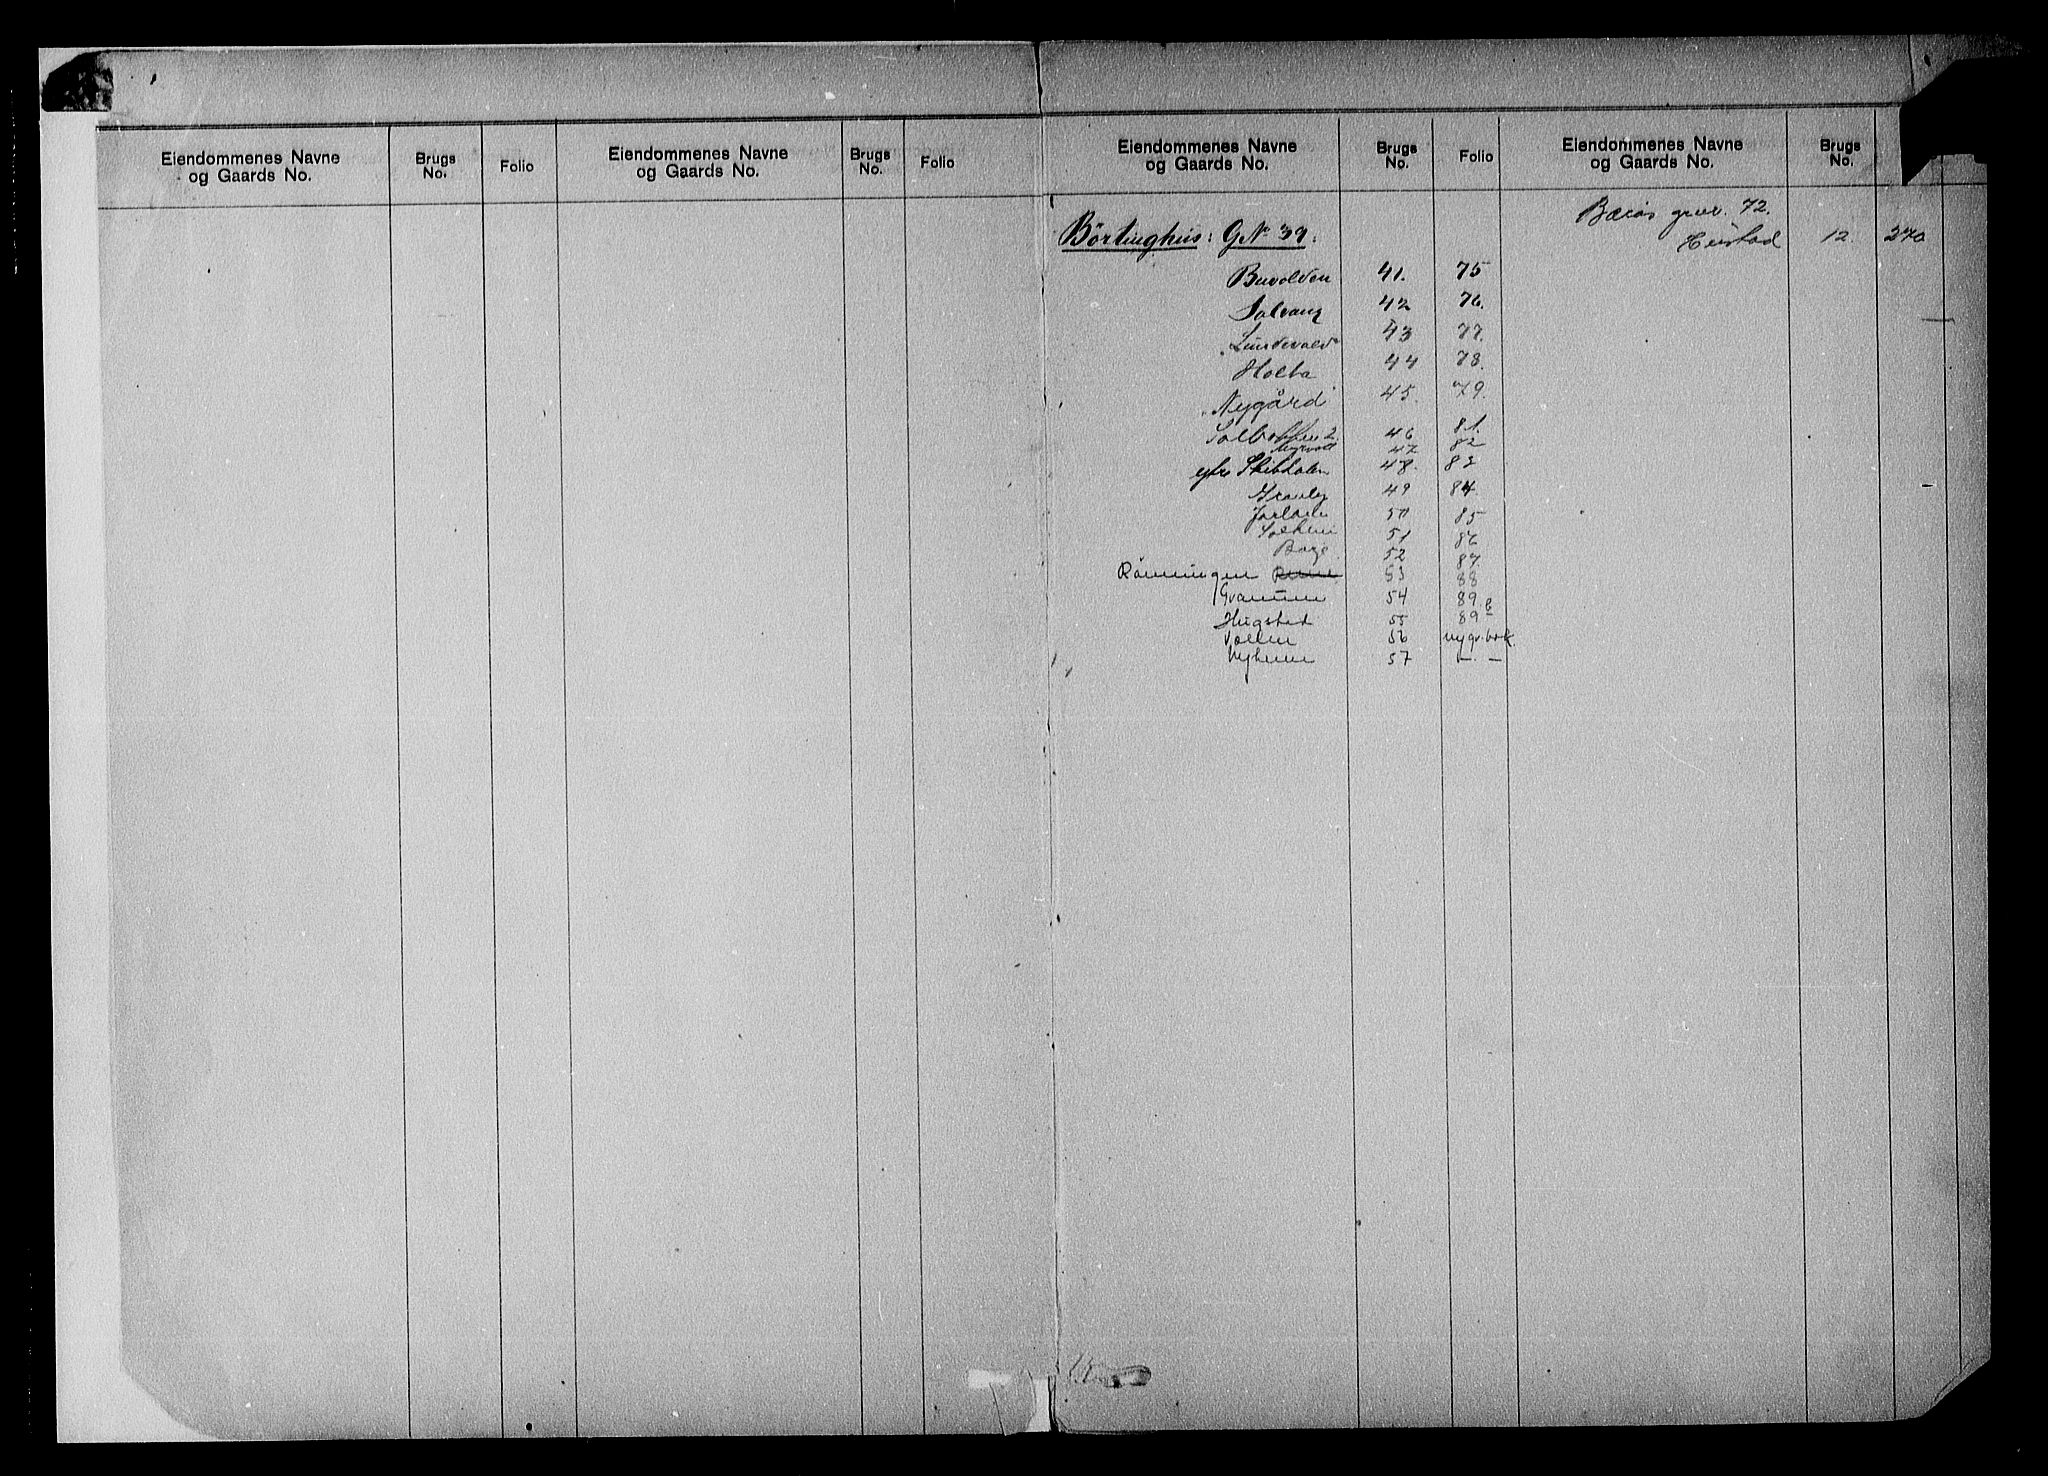 Eiendommenes Navne og Gaards No. Brugs No. Folio Eiendommenes Navne og Gaards No. Brugs No. Folio
Eiendommenes Navne og Gaards No. Brugs No. Folio Eiendommenes Navne og Gaards No. Brugs No.
Börtinghus: GNo 37:
Buvolden 41. 75
Solvang 42 76.
"Lundevold" 43 77.
Holta 44 78.
"Nygård" 45. 79.
46 81.
Myrvoll 47 82
48. 83
Granly 49 84.
50 85
Solheim 51 86
52 87.
Rönningen 53 88
Granum 54 89
Haugstad 55 89 b
Vollen 56 ny gr. bok.
Nyheim 57 — —
72.
12. 270